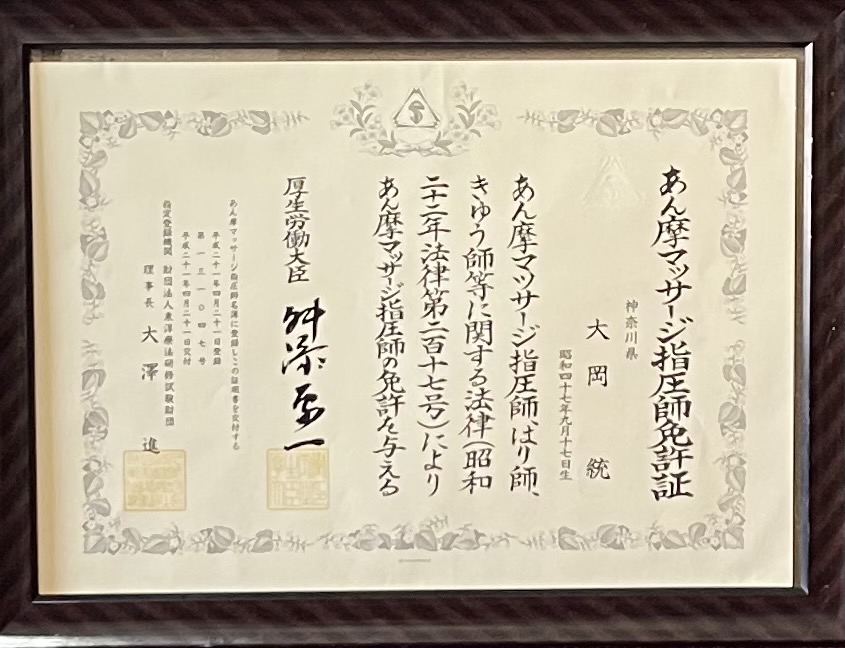 あん摩マッサージ指圧師免許証
神奈川県
大岡 統
昭和四十七年九月十七日生
あん摩マツサージ指圧師、はり師、
きゆう師等に関する法律(昭和
二十二年法律第二百十七号)により
あん摩マッサージ指圧師の免許を与える
厚生労働大臣 舛添要一
あん摩マッサージ指圧師名簿に登録しこの証明書を交付する
平成二十一年四月二十一日登録
第一三一〇四七号
平成二十一年四月二十一日交付
指定登録機関 財団法人東洋療法研修試験財団
理事長 大澤 進